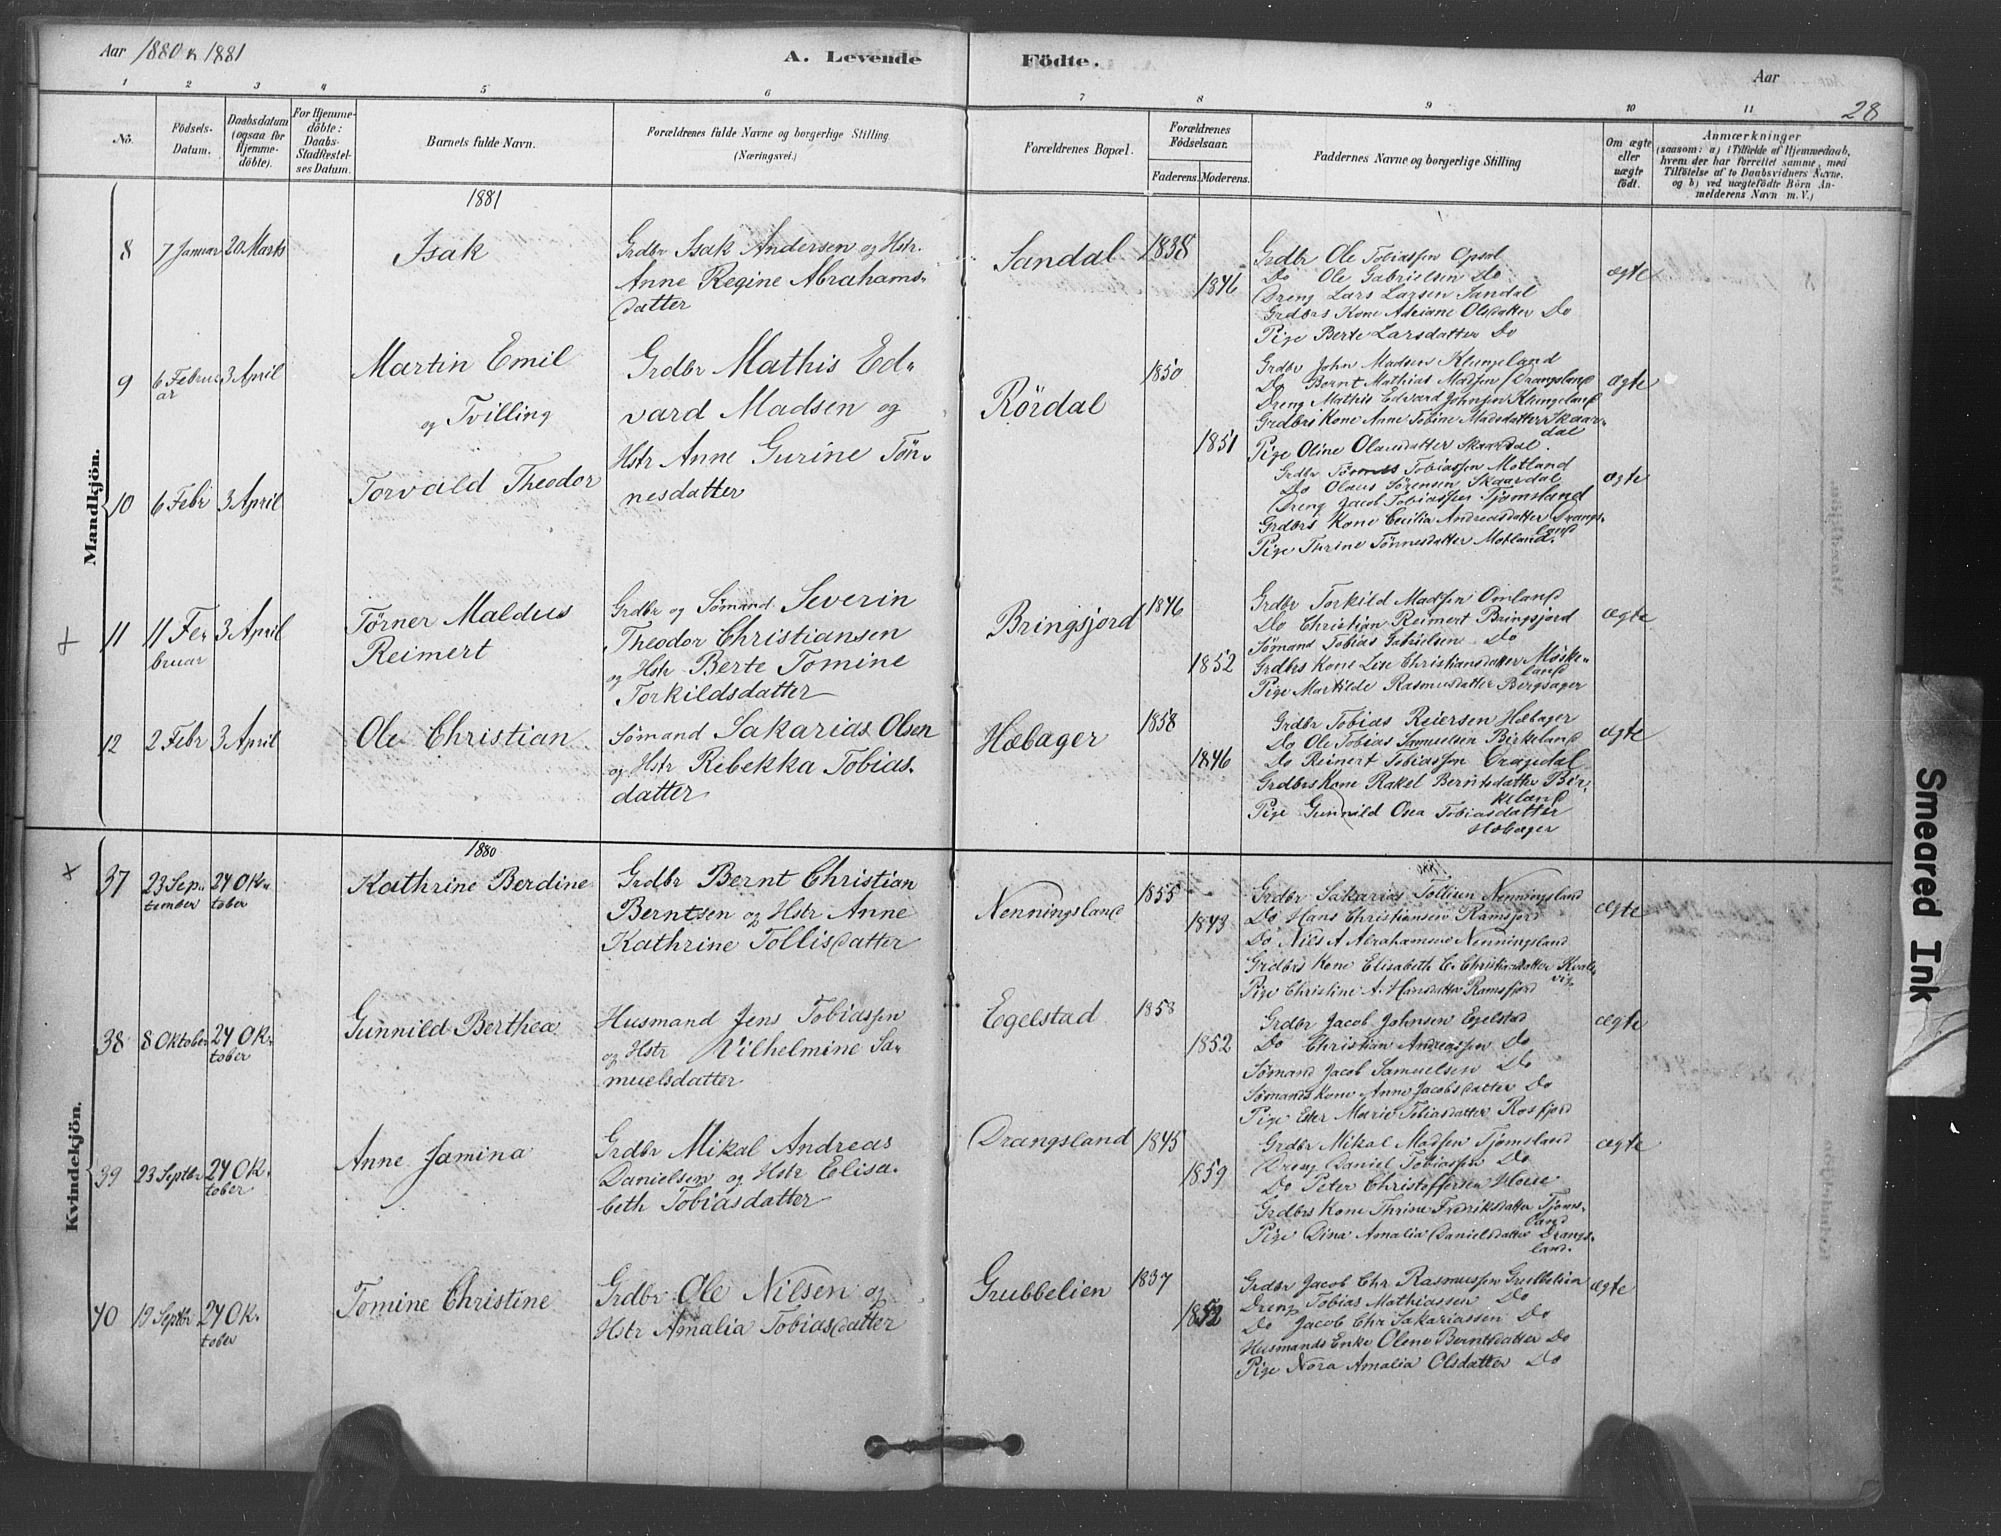 Aar 1880 & 1881
A. Levende Födte.
Aar
28
1 2 3 4 5 6 7 8 9 10 11
No.
Födsels-Datum.
Daabsdatum (ogsaa for Hjemme-döbte).
For Hjemme-döbte: Daabs-Stadfæstel-ses Datum.
Barnets fulde Navn.
Forældrenes fulde Navne og borgerlige Stilling.
(Næringsvei.)
Forældrenes Bopæl.
Forældrenes Födselsaar.
Faderens. Moderens.
Faddernes Navne og borgerlige Stilling
Om ægte eller uægte födt.
Anmærkninger
(saasom: a) i Tilfælde af Hjemmedaab, hvem der har forrettet samme, med Tilföielse af to Daabsvidners Navne. og b) ved uægtefödte Börn An-melderens Navn m. V.)
Mandkjön.
1881
8 7 Januar 20 Marts
Isak
Grdbr Isak Andersen og Hstr.
Anne Regine Abrahams-
datter
Sandal
1838
1846
Grdbr Ole Tobiassen Opsal
Do Ole Gabrielsen Do
Dreng Lars Larsen Sandal
Grdbrs Kone Adriane Olsdatter Do
Pige Berte Larsdatter Do
ægte
9 6 Februar 3 April
Martin Emil
og Tvilling
Grdbr Mathis Ed-
vard Madsen og
Hstr Anne Gurine Tön-
nesdatter
Rördal
1850
1851
Grdbr John Madsen Klungeland
Do Bernt Mathias Madsen Drangsland
Dreng Mathis Edvard Johnsen Klungeland
Grdbrs Kone Anne Tobine Madsdatter Skaar-
dal
Pige Oline Olausdatter Skaardal
ægte
10 6 Febr 3 April
Torvald Theodor
Grdbr Tönnes Tobiassen Motland
Do Olaus Sörensen Skaardal
Dreng Jacob Tobiassen Tjomsland
Grdbrs Kone Cecilia Andreasdatter Drangs-
land
Pige Thrine Tönnesdatter Motland.
ægte
+ 11 11 Februar 3 April
Törner Maldus
Reimert
Grdbr og Sömand Severin
Theodor Christiansen
og Hstr Berte Tomine
Torkildsdatter
Bringsjord
1846
1852
Grdbr Torkild Madsen Omland
Do Christian Reimert Bringsjord
Sömand Tobias Gabrielsen Do
Grdbrs Kone Lise Christiansdatter Möske-
land
Pige Martilde Rasmusdatter Bergsager
ægte
12 2 Febr 3 April
Ole Christian
Sömand Sakarias Olsen
og Hstr Rebekka Tobias-
datter
Hæbager
1858
1846
Grdbr Tobias Reiersen Hæbager
Do Ole Tobias Samuelsen Birkeland
Do Reinert Tobiassen
Grdbrs Kone Rakel Berntsdatter Bir-
keland
Pige Gunnild Osea Tobiasdatter
Hæbager
ægte
Kvindekjön.
1880
1880
x 37 23 September 24 Oktober
Kathrine Berdine
Grdbr Bernt Christian
Berntsen og Hstr Anne
Kathrine Tollisdatter
Nenningsland
1855
1843
Grdbr Sakarias Tollisen Nenningsland
Do Hans Christiansen Ramsfjord
Do Nils A Abrahamsen Nenningsland
Grdbrs Kone Elisabeth C. Christiansdatter Kvale-
vig
Pige Christine A. Hansdatter Ramsfjord
ægte
38 8 Oktober 24 Oktober
Gunnild Berthea
Husmand Jens Tobiassen
og Hstr Vilhelmine Sa-
muelsdatter
Egelstad
1858
1852
Grdbr Jacob Johnsen Egelstad
Do Christian Andreassen Do
Sömand Jacob Samuelsen Do
Sömands Kone Anne Jacobsdatter Do
Pige Marie Tobiasdatter Rosfjord
ægte
39 23 Septbr 24 Oktober
Anne Jamina
Grdbr Mikal Andreas
Danielsen og Hstr Elisa-
beth Tobiasdatter
Drangsland
1845
1859
Grdbr Mikal Madsen Tjomsland
Dreng Daniel Tobiassen Do
Do Peter Christoffersen
Grdbrs Kone Thrine Fredriksdatter Tjoms-
land
Pige Dina Amalia Danielsdatter Drangs-
land.
ægte
40 19 Septbr 24 Oktober
Tomine Christine
Grdbr Ole Nilsen og
Hstr Amalia Tobiasdatter
Grubbelien
1837
1852
Grdbr Jacob Chr Rasmussen Grubbelien
Dreng Tobias Mathiassen Do
Do Jacob Chr Sakariassen Do
Husmands Enke Olene Berntsdatter Do
Pige Nora Amalia Olsdatter Do
ægte
Smeared Ink